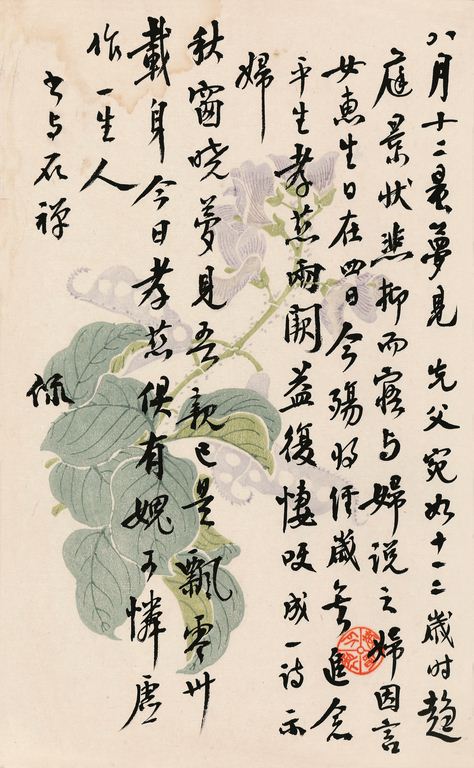 八月十二晨夢見 先父宛如十一二歲时趨
庭景狀悲抑而寤与婦說之婦因言
女惠生日在四日今殤将經歲矣追念
平生孝慈兩闕益復悽哽成一诗示
婦
秋窗晓夢見吾親已是飄零卅
載身今日孝慈俱有媿可憐虛
作一生人
书与石禅
侃